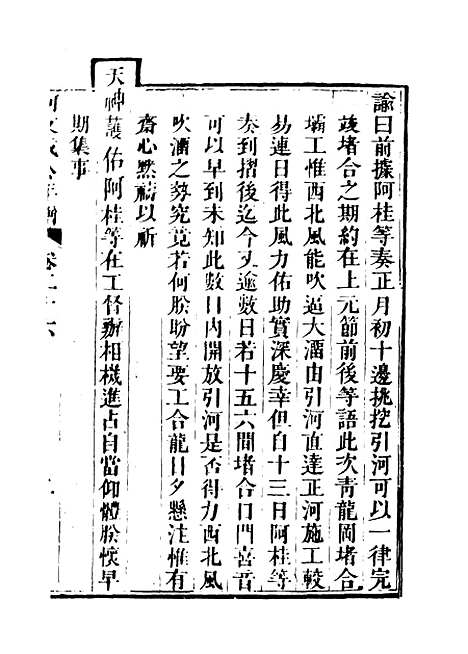 諭曰前據阿桂等奏正月初十邊挑挖引河可以一律完
竣堵合之期約在上元節前後等語此次青龍岡堵合
壩工惟西北風能吹逼大溜由引河直達正河施工較
易連日得此風力佑助實深慶幸但自十三日阿桂等
奏到摺後迄今又逾數日若十五六間堵合口門喜音
可以早到未知此數日內開放引河是否得力西北風
吹溜之勢究竟若何朕盼望要工合龍日夕懸注惟有
齋心默禱以祈
天神護佑阿桂等在工督辦相機進占自當仰體朕懷早
期集事
阿文成公年譜 卷二十六